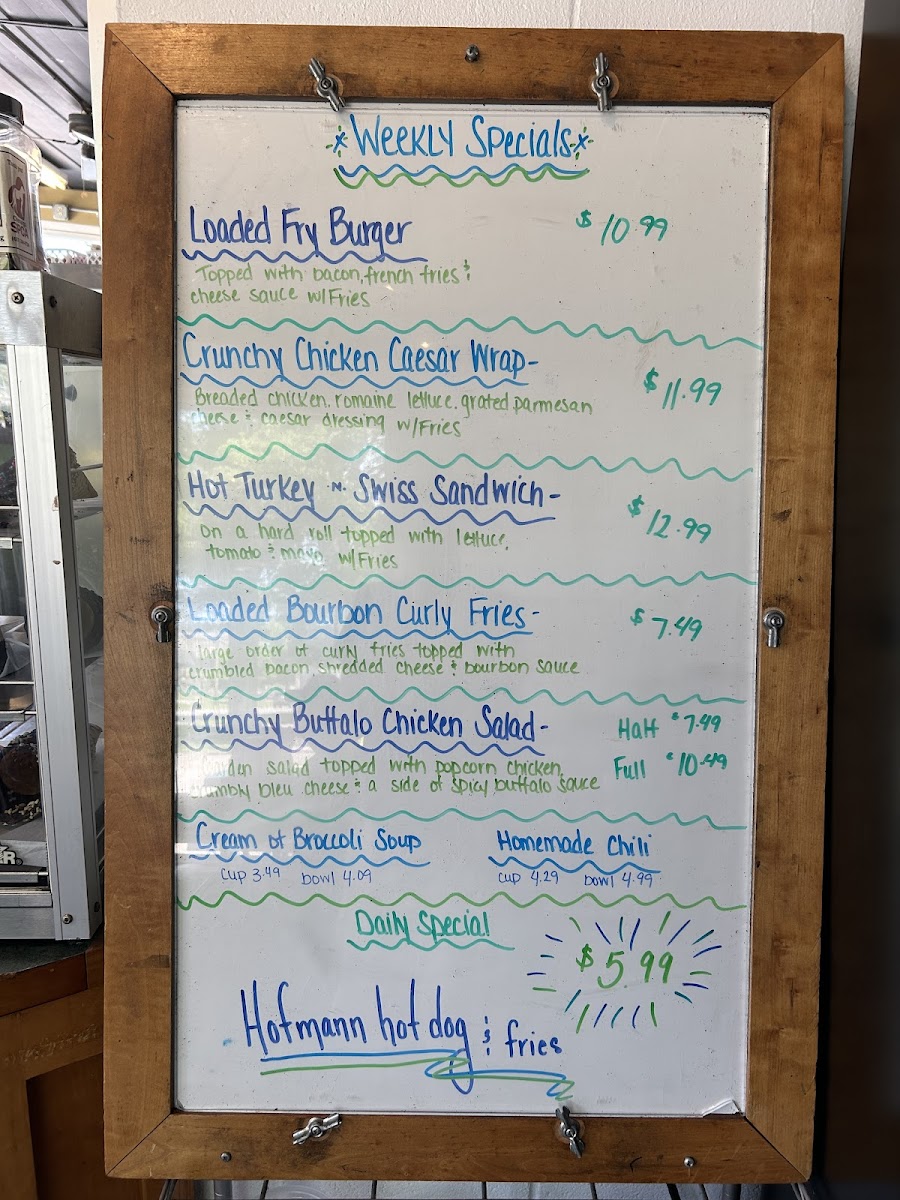 Weekly Specials
Loaded Fry Burger $10.99
Topped with bacon, french fries &
cheese sauce w/Fries
Crunchy Chicken Caesar Wrap- $11.99
Breaded chicken, romaine lettuce, grated parmesan
cheese & caesar dressing w/Fries
Hot Turkey N Swiss Sandwich- $12.99
on a hard roll topped with lettuce,
tomato & mayo w/Fries
Loaded Bourbon Curly Fries- $7.49
large order of curly fries topped with
crumbled bacon, shredded cheese & bourbon sauce
Crunchy Buffalo Chicken Salad- Half $7.49
Full $10.49
Garden salad topped with popcorn chicken,
crumbly bleu cheese & a side of spicy buffalo sauce
Cream of Broccoli Soup Homemade Chili
cup 3.49 bowl 4.09 cup 4.29 bowl 4.99
Daily Special
$5.99
Hofmann hot dog & fries